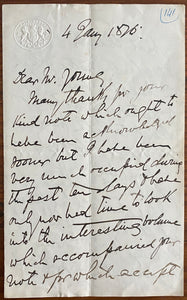 141
4 Jany 1876:
Dear Mr. Young
Many thanks for your
kind note which ought to
have been acknowledged
sooner but I have been
very much occupied during
the past ten days & have
only now had time to look
into the interesting volume
which accompanied your
note & for which accept